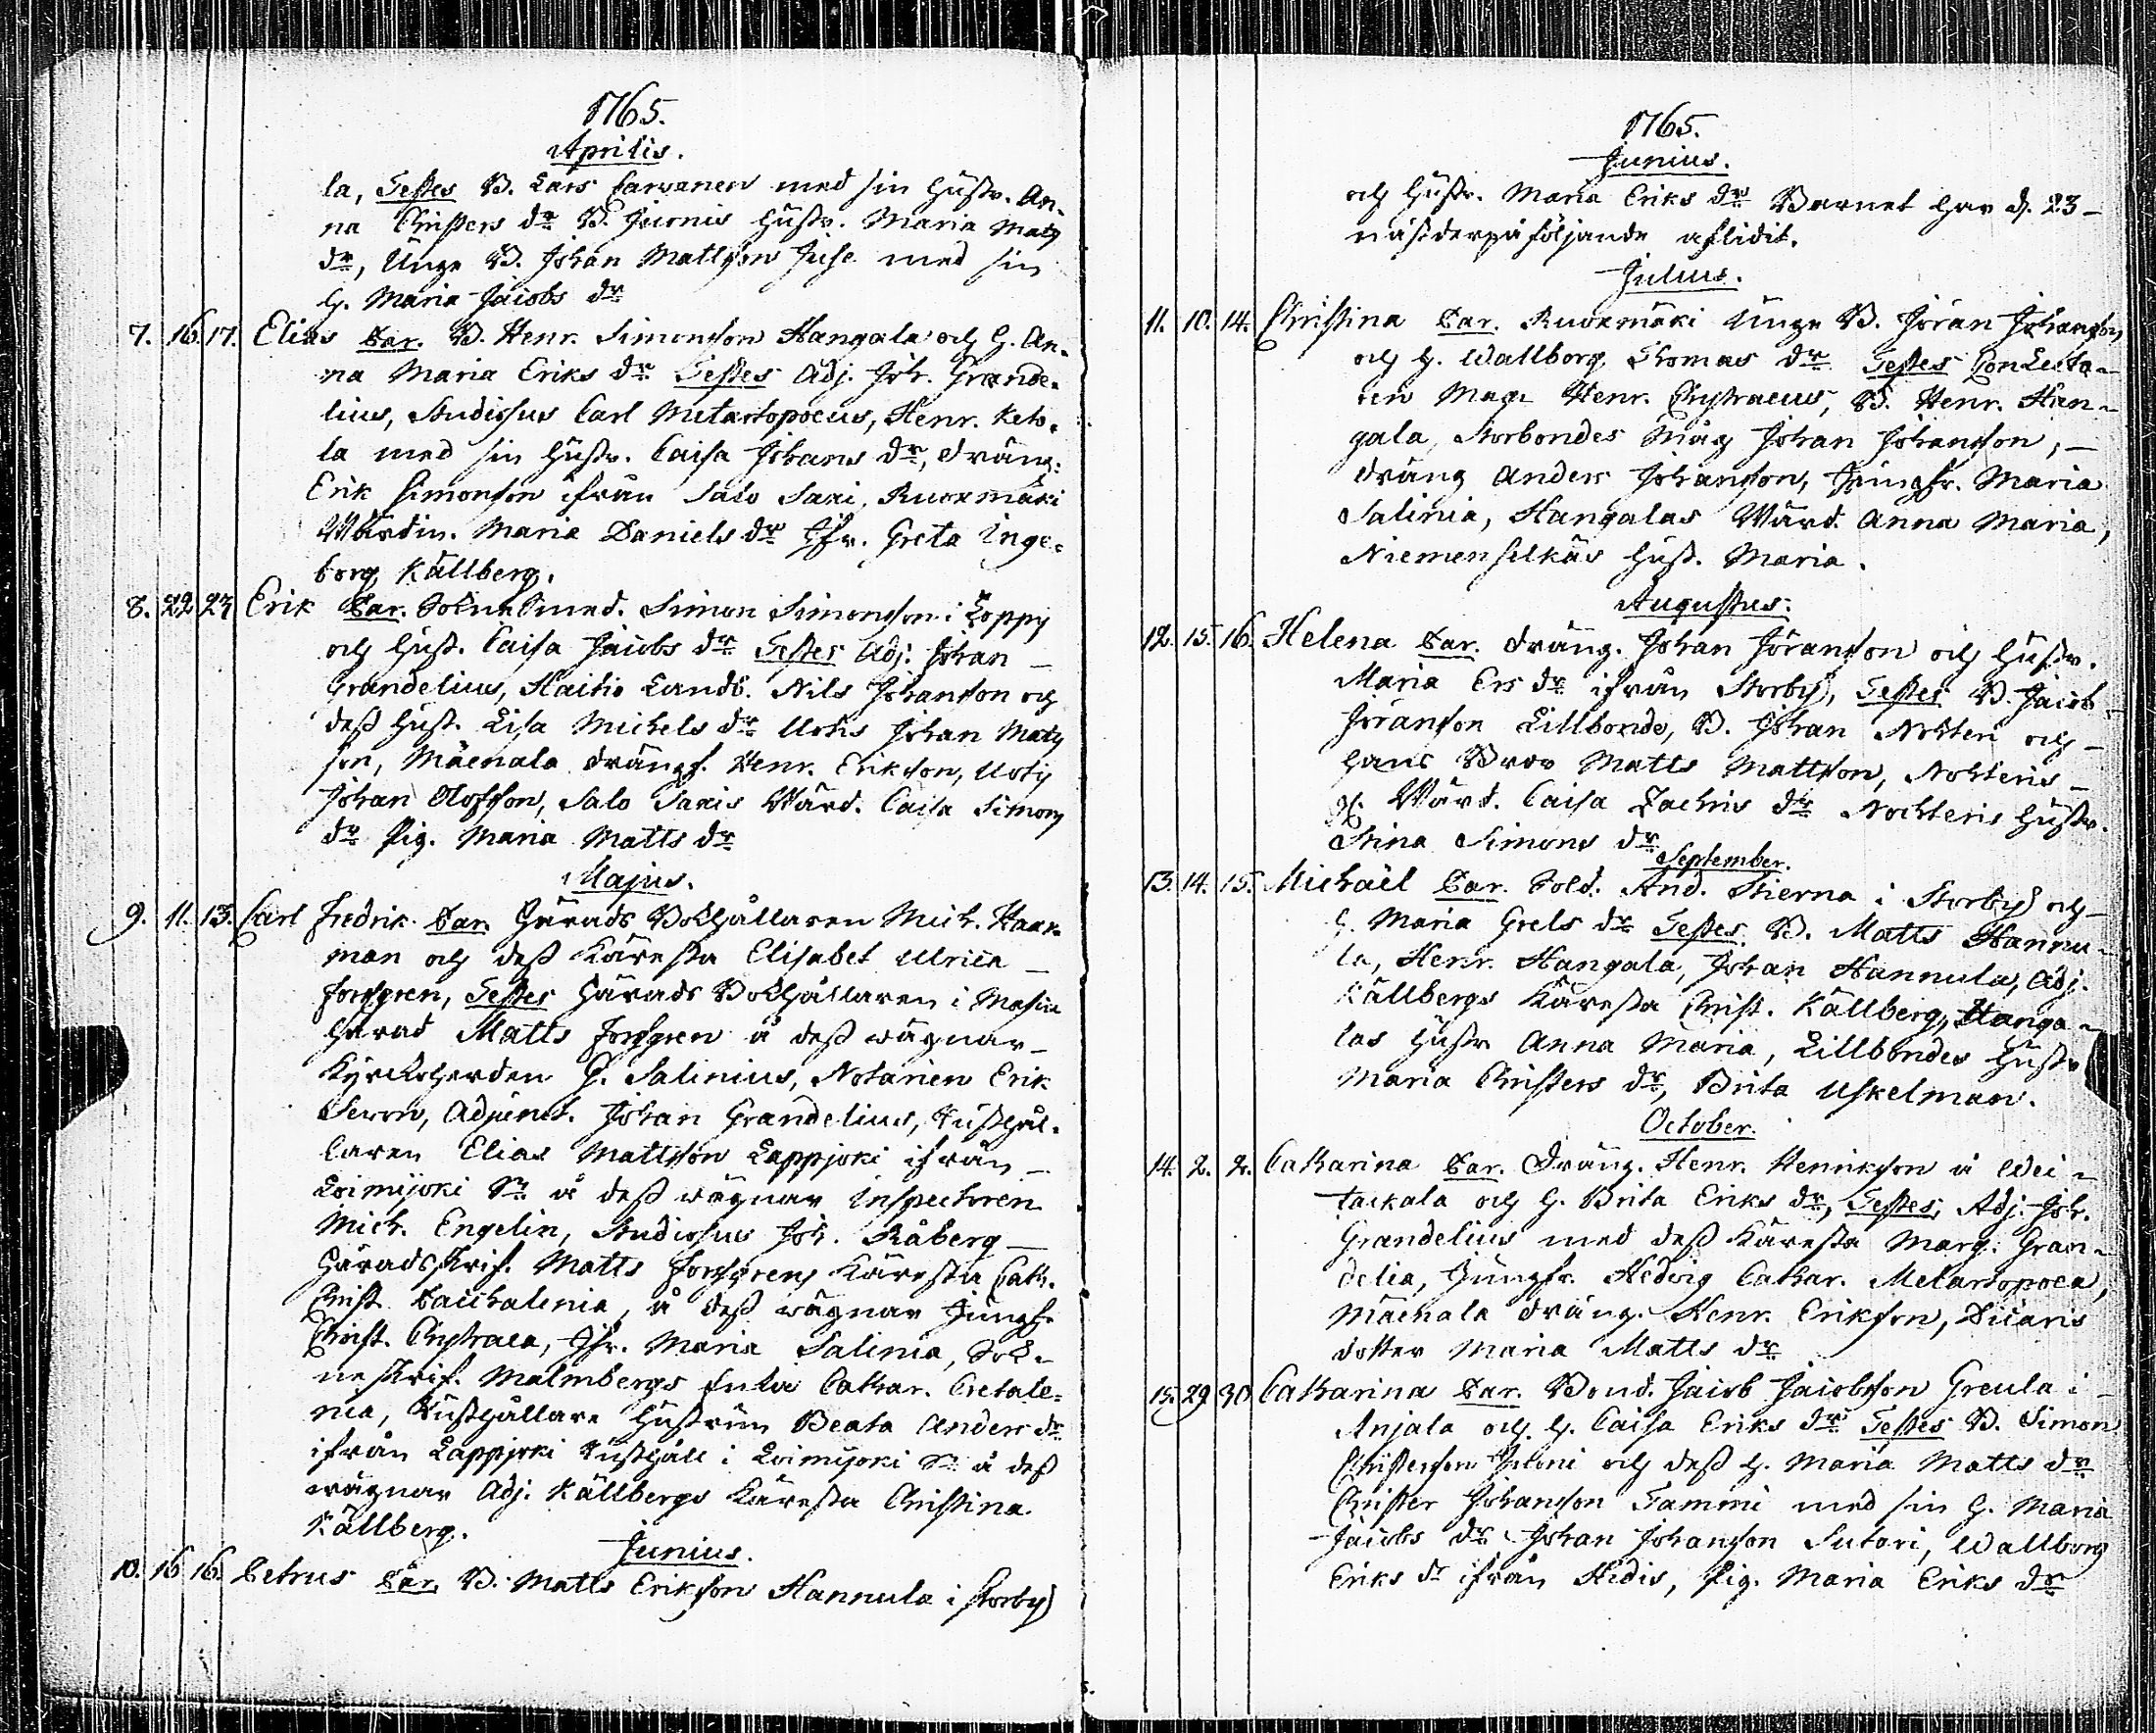 1765.
Aprilis.
la, Testes B. Lars Carvanen med sin hustr. An-
na Christers dr B. Juonis hustr. Maria Mats
dr, Unge B. Johan Mattsson Juse med sin
h. Maria Jacobs dr
7. 16. 17. Elias Par. B. Henr. Simonsson Hangala och h. An-
na Maria Eriks dr Testes Adj. Joh. Grande-
lius, Studiosus Carl Metartopoeus, Henr. Keto-
la med sin hustr. Caisa Johans dr, dräng:
Erik Simonson ifrån Salo Saxi, Ruoxmäki
Wärdin. Maria Daniels dr Jfr. Greta Inge-
borg Källberg.
8. 22 23 Erik Par. Sokne Smed. Simon Simonsson i Loppy
och hust. Caisa Jacobs dr Testes Adj. Johan –
Grandelius, Landb. Nils Johansson och
dess hust. Lisa Michels dr Johan Mats
son, Mäenala drängs. Henr. Eriksson,
Johan Olofsson, Salo Saxis Wärd. Caisa Simons
dr Pig. Maria Matts dr
Majus.
9. 11. 13. Carl Fredrik Par. Härads Bokhållaren Mich. Haar-
man och dess Käresta Elisabet Ulrica –
Forsgren, Testes Härads Bokhållaren i Masku
härad Matts Forsgren å dess wägnar –
Kyrckoherden G. Salinius, Notarien Erik
Adjunct. Johan Grandelius, Rusthål-
laren Elias Mattsson Lappjoki ifrån –
Loimijoki Sn å dess wägnar Inspectoren
Mich. Engelin, Studiosus Joh. Råberg –
Häradsskrif. Matts Forsgrens Käresta Cath.
Christ. Paccalenia, å dess wägnar Jungf.
Christ. Chytraea, Jfr. Maria Salinia, Sok-
neskrif. Malmbergs Enka Cathar. Cretale-
nia, Rusthållare hustrun Beata Anders dr
ifrån Lappjoki Rusthåll i Loimijoki Sn å dess
wägnar Adj. Källbergs Käresta Christina
Källberg.
Junius.
10. 16 16. Petrus Par. B. Matts Eriksson Hannula i Storby
1765.
Junius.
och hustr. Maria Eriks dr Barnet har d. 23 –
näst derpå följande aflidit.
Julius.
11. 10. 14. Christina Par. Ruoxmäki Unge B. Jöran Johansson
och h. Wallborg Thomas dr Testes Con Recto-
ren Mag. Henr. Chytraeus, B. Henr. Han-
gala, Storbondes Måg Johan Johansson, –
dräng Anders Johansson, Jungfr. Maria
Salinia, Hangalas Wärd. Anna Maria,
Niemenselkäs hust. Maria.
Augustus.
12. 15. 16. Helena Par. dräng. Johan Göransson och hustr.
Maria Ers dr ifrån Storby, Testes B. Jacob
Göransson Lillbonde, B. Johan Nohteri och –
hans Bror Matts Mattsson, Nohteris –
Wärd. Caisa Zachris dr Nochteris hustr.
Stina Simons dr
September.
13. 14. 15. Michaël Par. Sold. And. Stierna i Storby och
h. Maria Grels dr Testes B. Matts Hannu-
la, Henr. Hangala, Johan Hannula, Adj.
Källbergs Käresta Christ. Källberg, Hanga-
las hustr Anna Maria, Lillbondes hustr
Maria Christers dr, Brita Uskelman.
October.
14. 2. 2. Catharina Par. Dräng. Henr. Henriksson å Wei-
tackala och h. Brita Eriks dr, Testes, Adj. Joh.
Grandelius med dess Käresta Marg. Gran-
delia, Jungfr. Hedvig Cathar. Metartopoea,
Mäenala dräng. Henr. Eriksson,
dotter Maria Matts dr
15. 29 30 Catharina Par. Bond. Jacob Jacobsson Greula i –
Anjala och h. Caisa Eriks dr Testes B. Simon
Christersson och dess h. Maria Matts dr
Christer Johansson Tammi med sin h. Maria
Jacobs dr Johan Johansson Sutari, Wallborg
Eriks dr ifrån Hidis, Pig. Maria Eriks dr